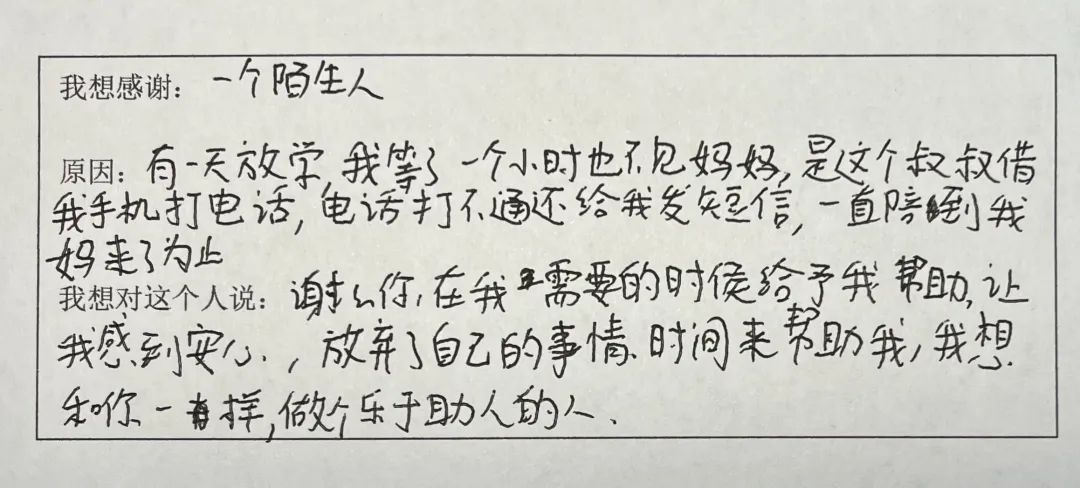 我想感谢：一个陌生人
原因：有一天放学,我等了一个小时也不见妈妈,是这个叔叔借
我手机打电话,电话打不通还给我发短信,一直陪到我
妈来了为止
我想对这个人说：谢谢你,在我需要的时候给予我帮助,让
我感到安心.,放弃了自己的事情、时间来帮助我,我想
和你一样,做个乐于助人的人.